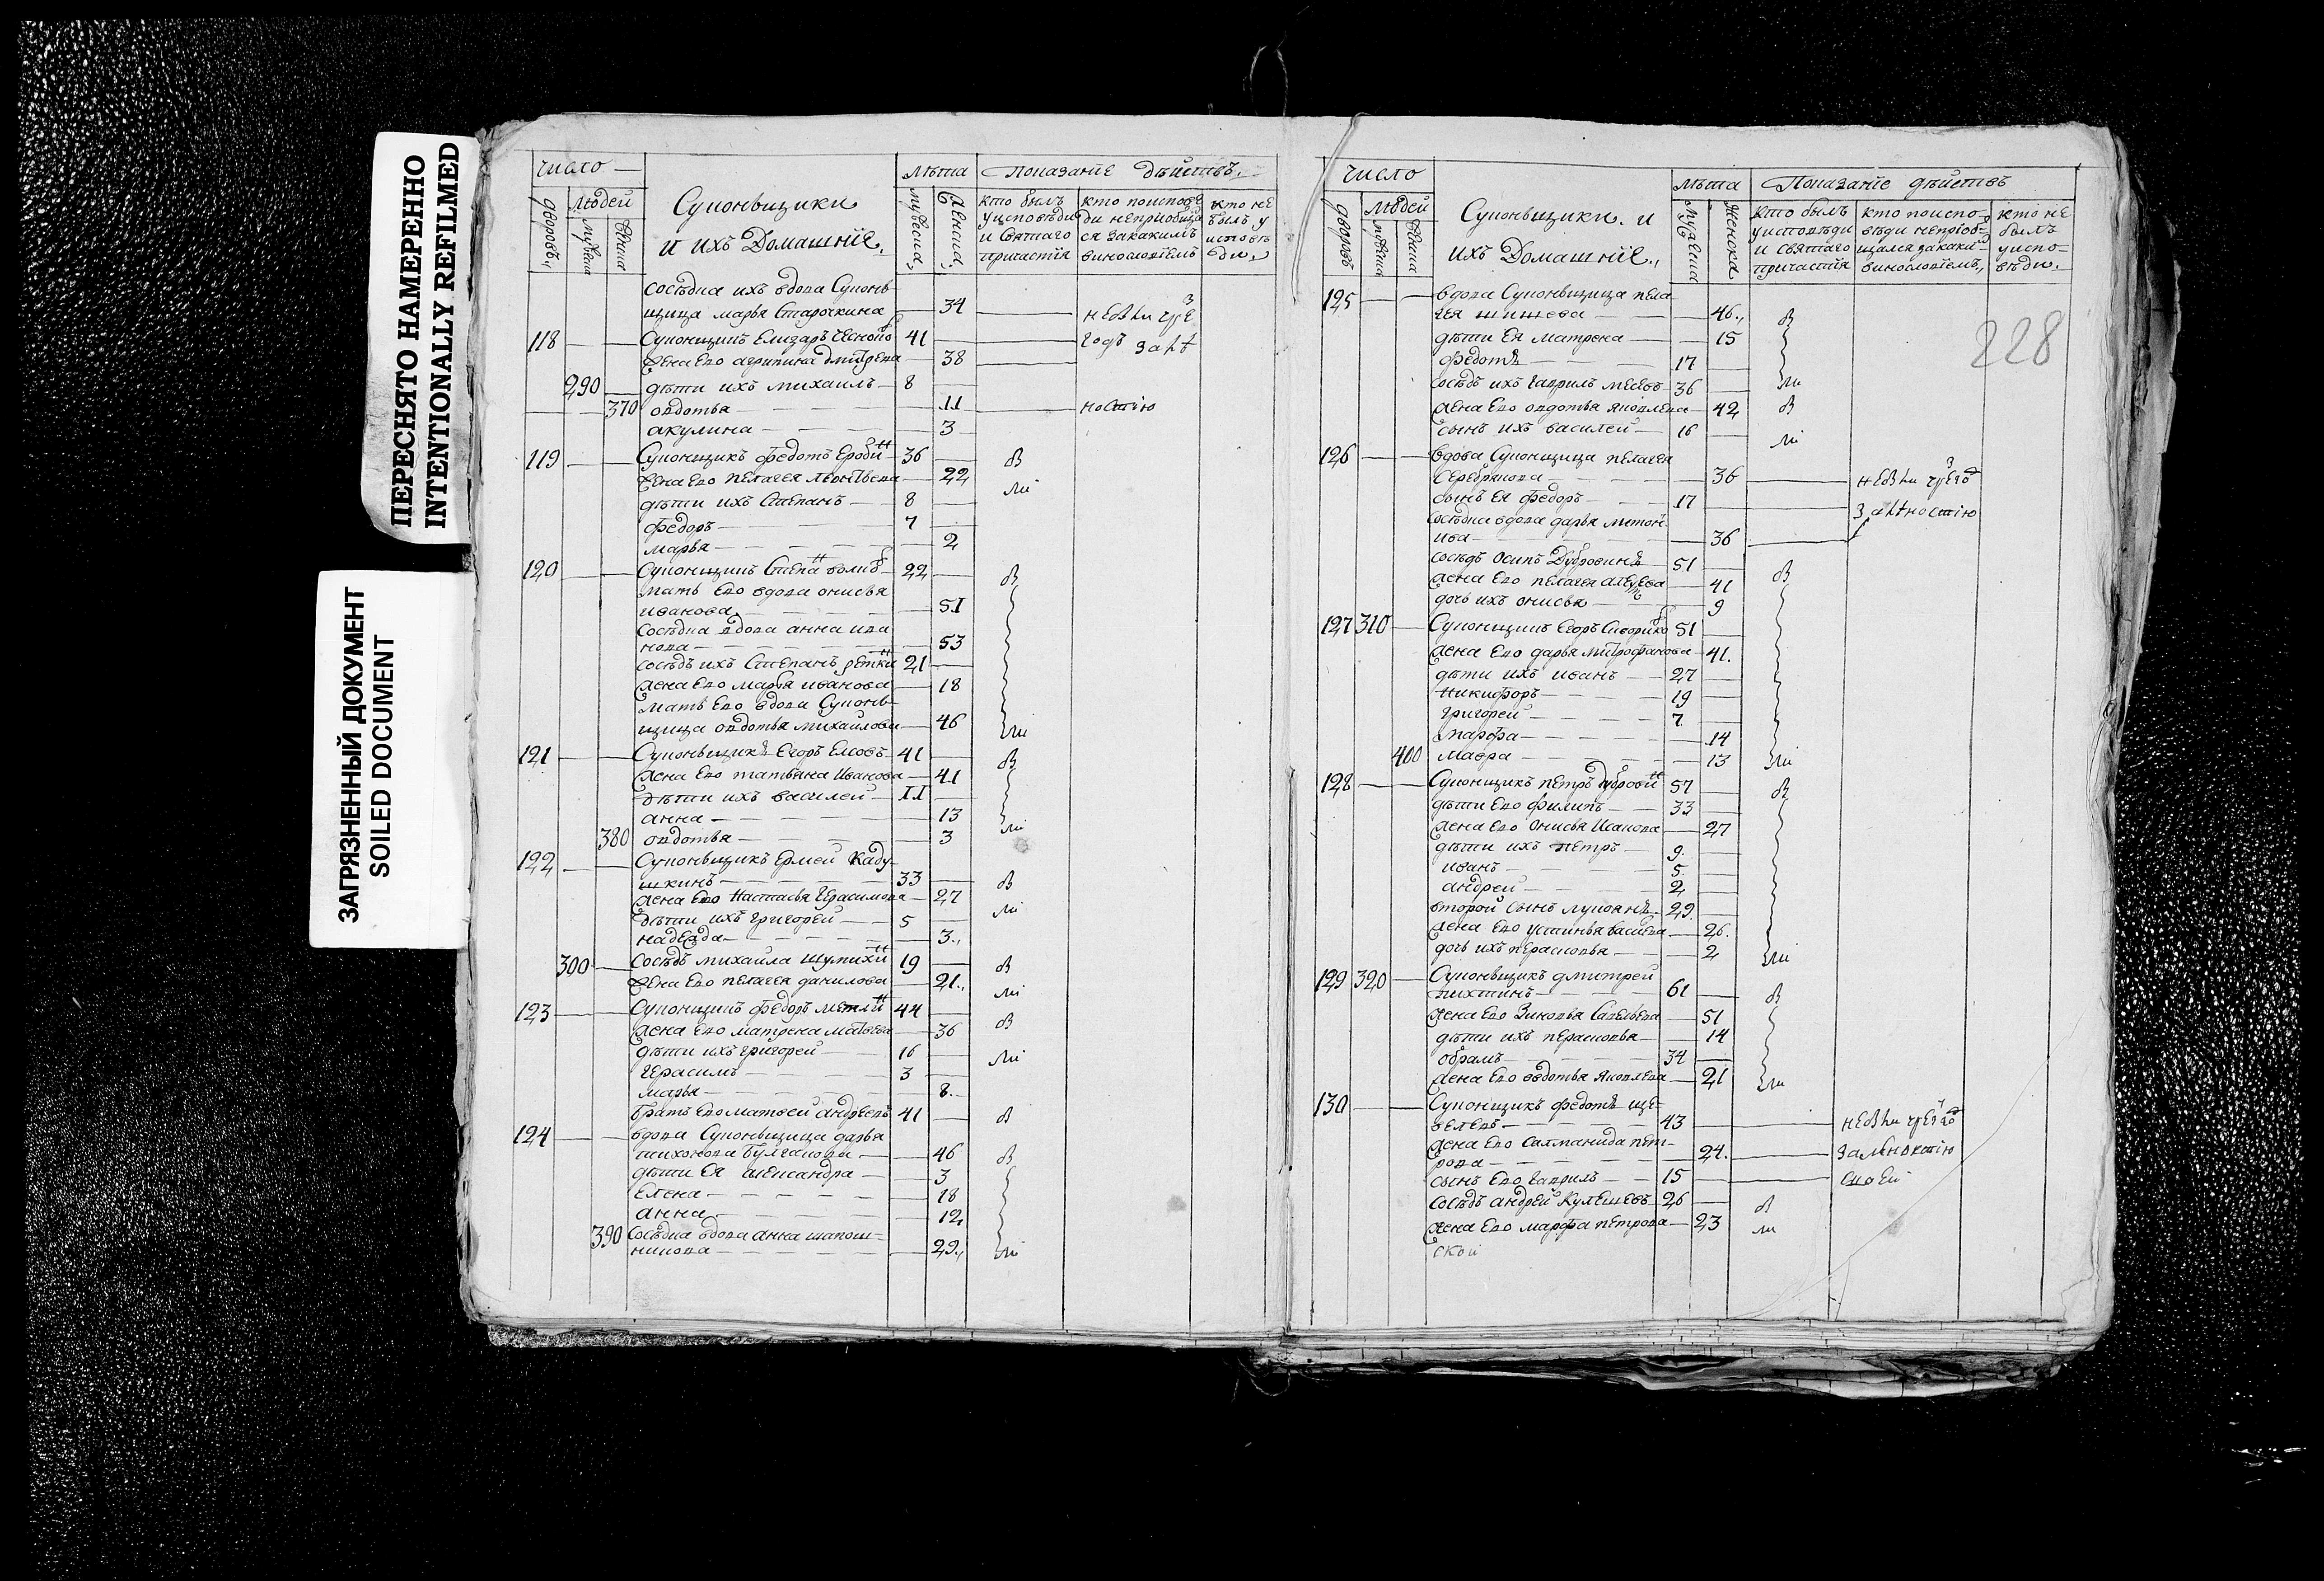 ПЕРЕСНЯТО НАМЕРЕННО
INTENTIONALLY REFILMED
ЗАГРЯЗНЕННЫЙ ДОКУМЕНТ
SOILED DOCUMENT
число
людей
дворовъ
мужеска
женска
Суконьщики
и ихъ Домашнїе
лѣта
мужеска
женска
Показанїе дѣйствъ
кто былъ у исповѣди и Святаго причастїя
кто по исповеди не приобщался за какимъ винословїемъ
кто не былъ у исповѣди
сосѣдка ихъ вдова Суконь
щица марья Старочкина 34
118 Суконщикъ Елизаръ 41
жена Его агрипина дмитрева 38
290 дѣти ихъ михаилъ 8
370 овдотья 11 ностїю
акулина 3
119 Суконщикъ федотъ Ерофи н 36 в
жена Его пелагея 22 ли
дѣти ихъ Степанъ 8
федоръ 7
марья 2
120 Суконщикъ Степа н 22 в
мать Его вдова онисья
иванова 51
сосѣдка вдова анна ива
нова 53
сосѣдъ ихъ Степанъ 21
жена Его марья иванова 18
мать Его вдова Суконь
щица овдотья михайлова 46 ли
121 Суконьщикъ Егоръ 41 в
жена Его татьяна Иванова 41
дѣти ихъ василей 11
анна 13
380 овдотья 3 ли
122 Суконьщикъ Ермей Каду
шкинъ 33 в
жена Его Настасья Герасимова 27 ли
дѣти ихъ григорей 5
надежда 3
300 Сосѣдъ михайла шумихи н 19 в
жена Его пелагея данилова 21 ли
123 Суконщикъ федоръ 44 в
жена Его матрена 36
дѣти ихъ григорей 16 ли
герасимъ 3
марья 8
братъ Его матвей андреевъ 41 в
124 вдова Суконьщица дарья
тихонова 46 в
дѣти Ея александра 3
Елена 18
анна 12
390 Сосѣдка вдова анна шапош
никова 29 ли
число
людей
дворовъ
мужеска
женска
Суконьщики и
ихъ Домашнїе
лѣта
мужеска
женска
Показанїе дѣйствъ
кто былъ у исповѣди и святаго причастїя
кто по исповѣди не прїобщался за каким винословїемъ
кто не былъ у исповѣди
228
125 вдова Суконьщица пела
гея шишова 46 в
дѣти Ея матрена 15
федотъ 17
сосѣдъ ихъ гаврилъ 36 ли
жена Его овдотья яковлева 42 в
сынъ ихъ василей 16 ли
126 вдова Суконщица пелагея
Серебрякова 36
сынъ Ея федоръ 17
сосѣдка вдова дарья
36
сосѣдъ осипъ Дубровинъ 51 в
жена Его пелагея 41
дочь ихъ онисья 9
127 310 Суконщикъ Егоръ 51
жена Его дарья митрофанова 41
дѣти ихъ иванъ 27
Никифоръ 19
григорей 7
марфа 14
400 мавра 13 ли
128 Суконщикъ петръ дуброви н 57 в
дѣти Его филипъ 33
жена Его Онисья Исакова 27
дѣти ихъ петръ 9
иванъ 5
андрей 2
второй сынъ лукоянъ 29
жена Его устинья 26
дочь ихъ перасковья 2 ли
129 320 Суконьщикъ дмитрей
61 в
жена Его Зиновья Савельева 51
дѣти ихъ перасковья 14
обрамъ 34
жена Его овдотья яковлева 21 ли
130 Суконщикъ федотъ
43
жена Его Саламанида пет
рова 24
сынъ Его гаврилъ 15
сосѣдъ андрей Кулешевъ 26 в
жена Его марфа петрова 23 ли
ской